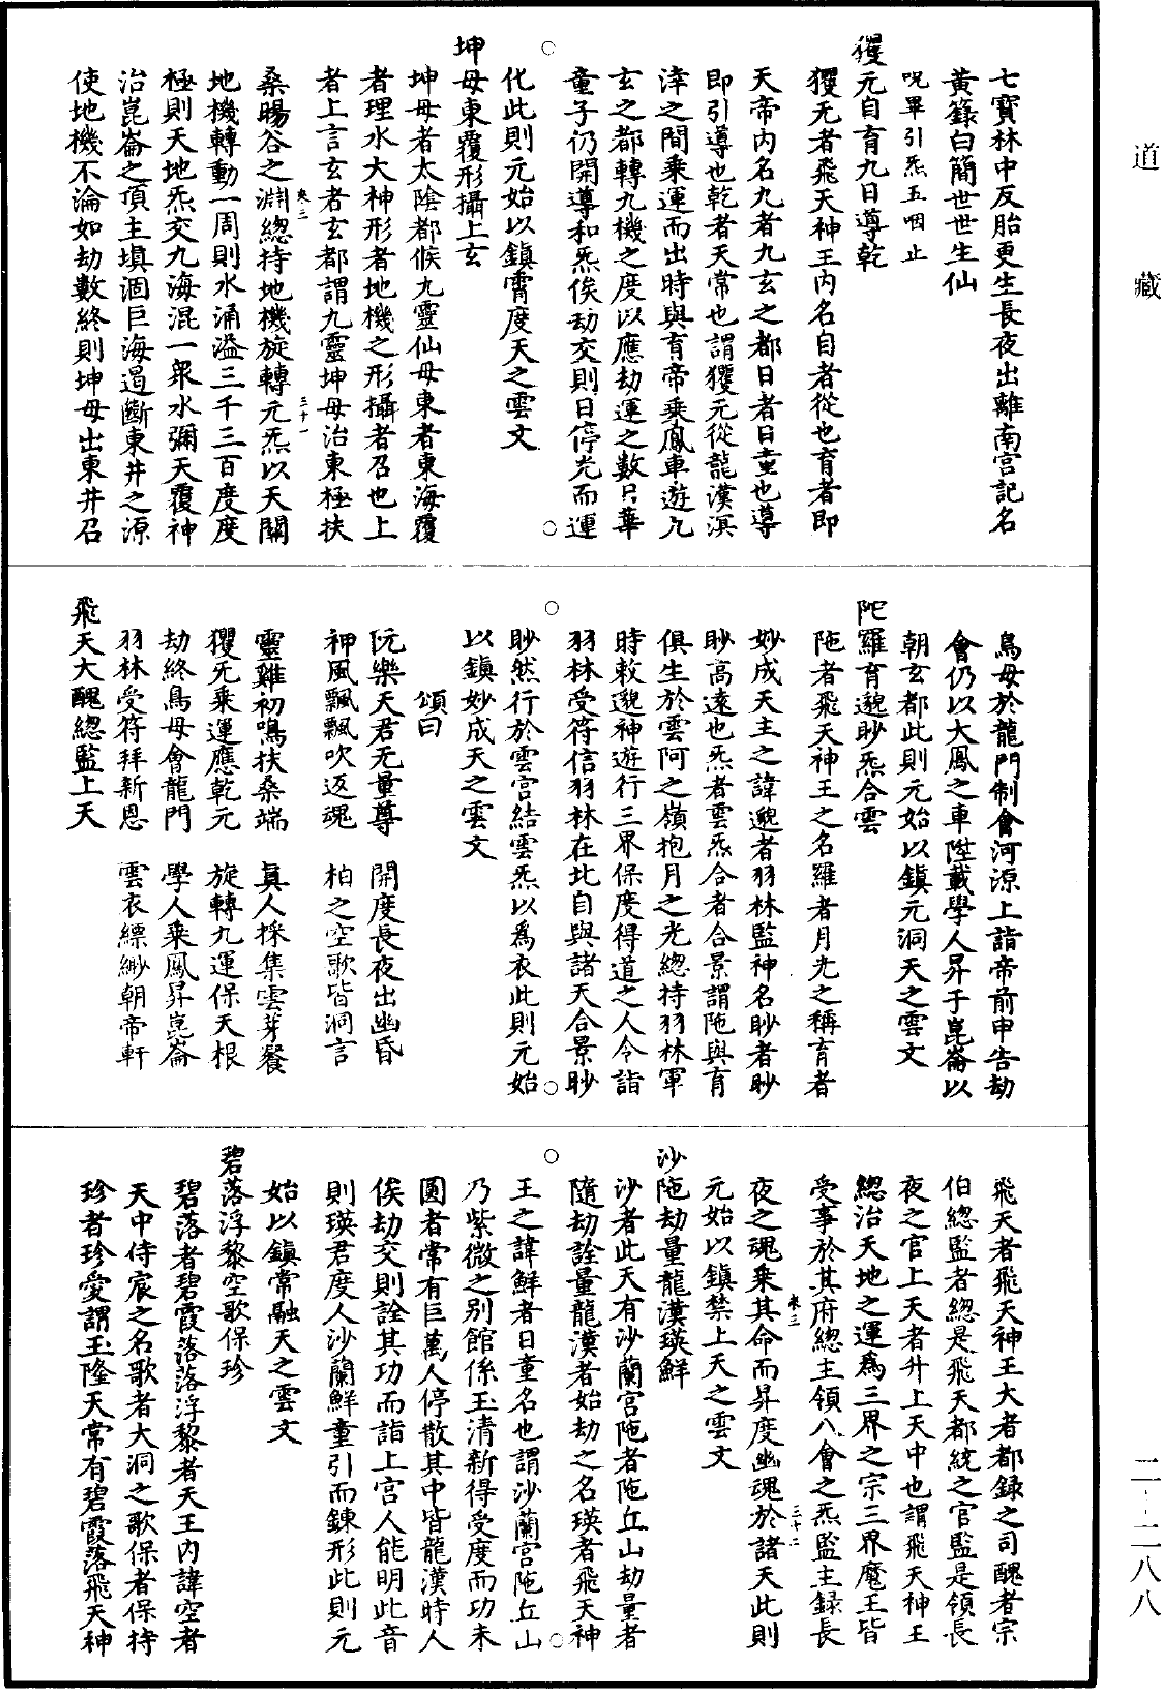 道藏
七寶林中反胎更生長夜出離南宮記名
黃籙白簡世世生仙
呪畢引炁五咽止
玃无自育九日導乾
玃无者飛天神王內名自者從也育者即
天帝內名九者九玄之都日者日童也導
即引導也乾者天常也謂玃元從龍漢溟
涬之間乘運而出時與育帝乘鳳車遊九
玄之都轉九機之度以應劫運之數日華
童子仍開導和炁俟劫交則日停光而運
化此則元始以鎮霄度天之雲文
坤母東覆形攝上玄
坤母者太陰都候九靈仙母東者東海覆
者理水大神形者地機之形攝者召也上
者上言玄者玄都謂九靈坤母治東極扶
桑暘谷之淵總持地機旋轉元炁以天關
地機轉動一周則水涌溢三千三百度度
極則天地炁交九海混一衆水彌天覆神
治崑崙之頂主填涸巨海遏斷東井之源
使地機不淪如劫數終則坤母出東井召
鳥母於龍門制會河源上詣帝前申告劫
會仍以大鳳之車陞載學人昇于崑崙以
朝玄都此則元始以鎮元洞天之雲文
陁羅育邈眇炁合雲
陁者飛天神王之名羅者月光之稱育者
妙成天主之諱邈者羽林監神名眇者眇
眇高遠也炁者雲炁合者合景謂陁與育
俱生於雲阿之嶺抱月之光總持羽林軍
時敕邈神遊行三界保度得道之人令詣
羽林受符信羽林在北自與諸天合景眇
眇然行於雲宮結雲炁以爲衣此則元始
以鎮妙成天之雲文
頌曰
阮樂天君无量尊　開度長夜出幽昏
神風飄飄吹返魂　柏之空歌皆洞言
靈雞初鳴扶桑端　真人採集雲芽餐
玃无乘運應乾元　旋轉九運保天根
劫終鳥母會龍門　學人乘鳳昇崑崙
羽林受符拜新恩　雲衣縹緲朝帝軒
飛天大醜總監上天
飛天者飛天神王大者都錄之司醜者宗
伯總監者總是飛天都統之官監是領長
夜之官上天者升上天中也謂飛天神王
總治天地之運爲三界之宗三界魔王皆
受事於其府總主領八會之炁監主錄長
夜之魂乘其命而昇度幽魂於諸天此則
元始以鎮禁上天之雲文
沙陁劫量龍漢瑛鮮
沙者此天有沙蘭宮陁者陁丘山劫量者
隨劫詮量龍漢者始劫之名瑛者飛天神
王之諱鮮者日童名也謂沙蘭宮陁丘山
乃紫微之別館係玉清新得受度而功未
圓者常有巨萬人停散其中皆龍漢時人
俟劫交則詮其功而詣上宮人能明此音
則瑛君度人沙蘭鮮童引而鍊形此則元
始以鎮常融天之雲文
碧落浮黎空歌保珍
碧落者碧霞落落浮黎者天王內諱空者
天中侍宸之名歌者大洞之歌保者保持
珍者珍愛謂玉隆天常有碧霞落飛天神
二－二八八